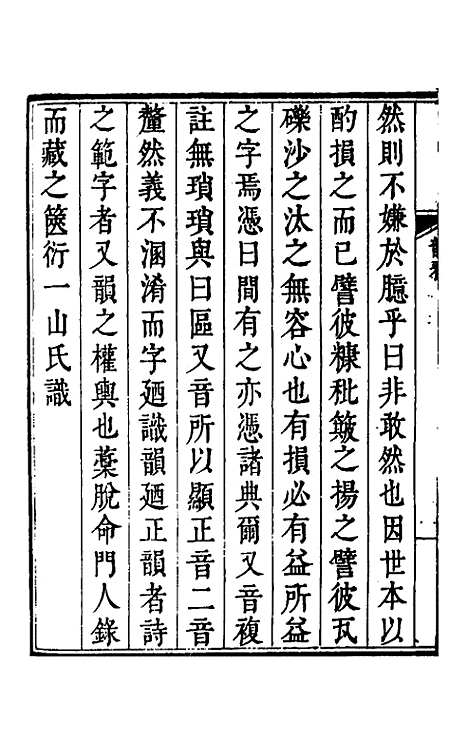 然則不嫌於臆乎曰非敢然也因世本以
酌損之而已譬彼糠秕簸之揚之譬彼瓦
礫沙之汰之無容心也有損必有益所益
之字焉憑曰間有之亦憑諸典爾又音複
註無瑣瑣與曰區又音所以顯正音二音
釐然義不溷淆而字廼識韻廼正韻者詩
之範字者又韻之權輿也藁脫命門人錄
而藏之篋衍一山氏識